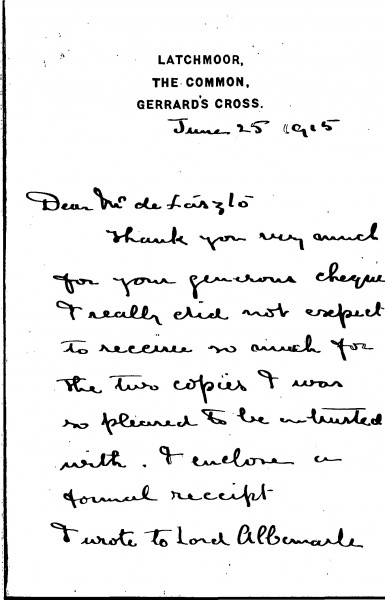 LATCHMOOR,
THE COMMON,
GERRARD'S CROSS.
June 25 1915
Dear Mr de László
Thank you very much
for your generous cheque
I really did not expect
to receive so much for
the two copies I was
so pleased to be intrusted
with. I enclose a
formal receipt
I wrote to Lord Albemarle